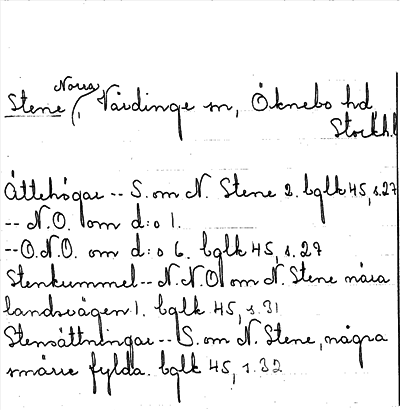 Stene, Norra, Vårdinge sn, Öknebo hd
Stockh.l
Ättehögar -- S. om N. Stene 2. bglk 45, s.27
-- N.O. om d:o 1.
-- O.N.O. om d:o 6. bglk 45, s.27
Stenkummel -- N.N.O. om N. Stene nära
landsvägen 1. bglk 45, s.31
Stensättningar -- S. om N. Stene, några
smärre fyllda. bglk 45, s.32